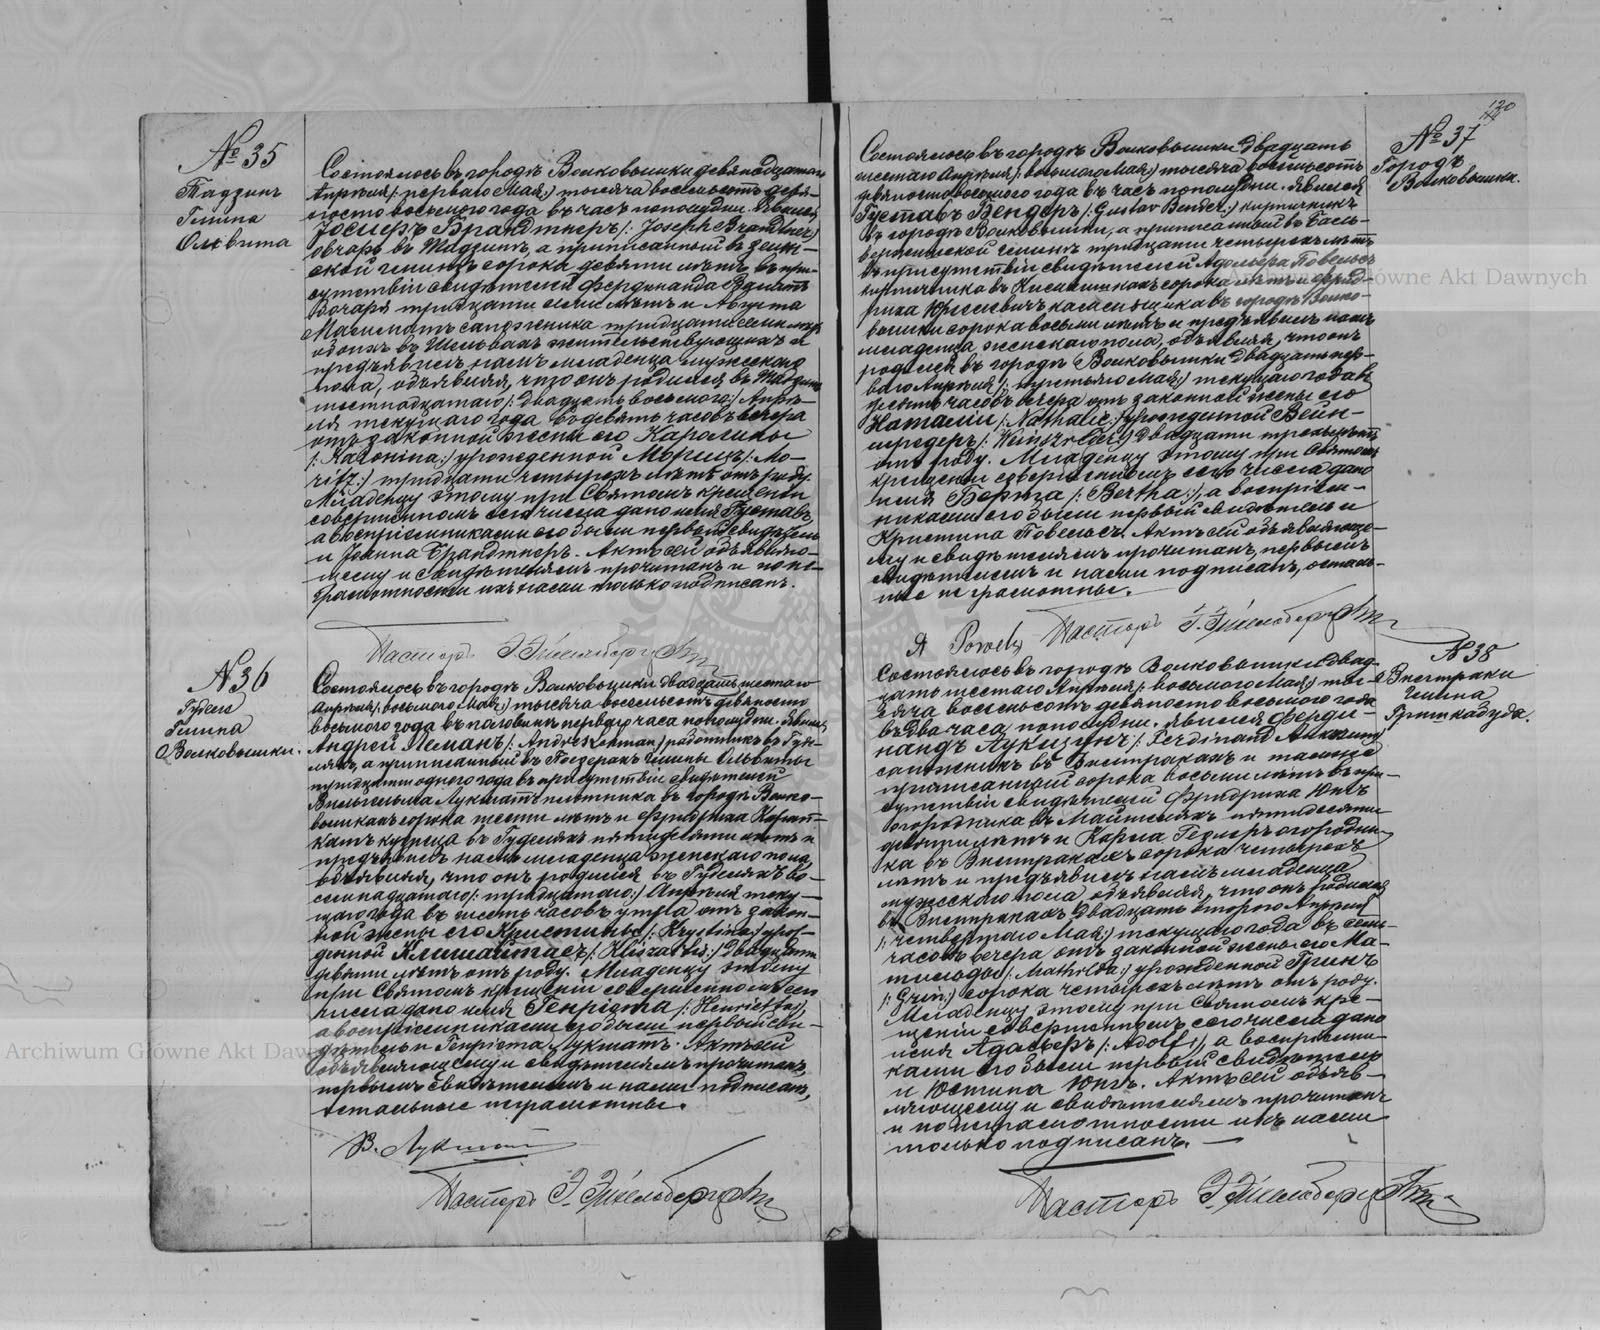 № 35
Тадзинъ
Гмина
Ольвита
Состоялось въ городѣ Волковышки девятнадцатаго
Апрѣля /: перваго Мая :/ тысяча восемьсотъ девя-
носто восьмого года въ часъ пополудни. Явился
Іосифъ Брандтнеръ /: Joseph Brandtner :/
овчаръ въ Тадзинѣ, а приписанный въ
ской гминѣ сорока девяти лѣтъ, въ при-
сутствіи свидѣтелей Фердинанда
бочаря тридцати семи лѣтъ и Августа
сапожника тридцати семи лѣтъ
обоихъ въ жительствующихъ и
предъявилъ намъ младенца мужескаго
пола, объявляя, что онъ родился въ Тадзинѣ
шестнадцатаго /: двадцать восьмого :/ Апрѣ-
ля текущаго года въ девять часовъ вечера
отъ законной жены его Каролины
/: Karonina :/ урожденной Морицъ /: Mo-
ritz :/ тридцати четырехъ лѣтъ отъ роду.
Младенцу этому при Святомъ крещеніи
совершенномъ сего числа дано имя Густавъ,
а воспріемниками его были первый свидѣтель
и Іоанна Брандтнеръ. Актъ сей объявляю-
щему и свидѣтелямъ прочитанъ и по не-
грамотности ихъ нами только подписанъ.
Пасторъ
№ 36
Гудели
Гмина
Волковышки.
Состоялось въ городѣ Волковышки двадцать шестаго
Апрѣля /: восьмого Мая :/ тысяча восемьсотъ девяносто
восьмого года въ половинѣ перваго часа пополудни. Явился
Андрей Леманъ /: Andres Lehman :/ работникъ въ Гуде-
ляхъ, а приписанный въ гмины Ольвиты
тридцати одного года въ присутствіи свидѣтелей
Вильгельма Лукшатъ плотника въ городѣ Волко-
вышкахъ сорока шести лѣтъ и Фридриха
кузнеца въ Гуделяхъ пятидесяти лѣтъ и
предъявилъ намъ младенца женскаго пола,
объявляя, что онъ родился въ Гуделяхъ во-
семнадцатаго /: тридцатаго :/ Апрѣля теку-
щаго года въ шесть часовъ утра отъ закон-
ной жены его Кристины /: Krystina :/ урож-
денной Климайтасъ двадцати
девяти лѣтъ отъ роду. Младенцу этому
при Святомъ крещеніи совершенномъ сего
числа дано имя Генріета /: Henrietta :/,
а воспріемниками его были первый сви-
дѣтель и Генріета Лукшатъ. Актъ сей
объявляющему и свидѣтелямъ прочитанъ,
первымъ свидѣтелемъ и нами подписанъ,
остальные неграмотны.
В. Лукшат
Пасторъ
130
№ 37
Городъ
Волковышки.
Состоялось въ городѣ Волковышки двадцать
шестаго Апрѣля /: восьмого Мая :/ тысяча восемьсотъ
девяносто восьмого года въ часъ пополудни. Явился
Густавъ Бендеръ /: Gustav Bender :/ кирпичникъ
въ городѣ Волковышки, а приписанный въ
гминѣ тридцати четырехъ лѣтъ
въ присутствіи свидѣтелей Адольфа Повельсъ
кирпичника въ сорока лѣтъ и Фрид-
риха каменьщика въ городѣ Волко-
вышки сорока восьми лѣтъ и предъявилъ намъ
младенца женскаго пола, объявляя, что онъ
родился въ городѣ Волковышки двадцать пер-
ваго Апрѣля /: третьяго Мая :/ текущаго года въ
часовъ вечера отъ законной жены его
Наталіи /: Nathalie :/ урожденной Вейн-
шредеръ двадцати трехъ лѣтъ
отъ роду. Младенцу этому при Святомъ
крещеніи совершенномъ сего числа дано
имя Берта /: Bertha :/, а воспріем-
никами его были первый свидѣтель и
Кристина Повельсъ. Актъ сей объявляюще-
му и свидѣтелямъ прочитанъ, первымъ
свидѣтелемъ и нами подписанъ, осталь-
ные неграмотны.
A Powels
Пасторъ
№ 38
Выстраки
Гмина
Гришкабуда.
Состоялось въ городѣ Волковышки двад-
цать шестаго Апрѣля /: восьмого Мая :/ ты-
сяча восемьсотъ девяносто восьмого года
въ два часа пополудни. Явился Ферди-
нандъ /: Ferdinand
сапожникъ въ Выстракахъ и тамъ же
приписанный сорока восьми лѣтъ въ при-
сутствіи свидѣтелей Фридриха Юнгъ
огородника въ пятидесяти
девяти лѣтъ и Карла огородни-
ка въ Выстракахъ сорока четырехъ
лѣтъ и предъявилъ намъ младенца
мужескаго пола объявляя, что онъ родился
въ Выстракахъ двадцать второго Апрѣля
/: четвертаго Мая :/ текущаго года въ семь
часовъ вечера отъ законной жены его Ма-
тильды /: Mathilda :/ урожденной Гринъ
/: Grin :/ сорока четырехъ лѣтъ отъ роду.
Младенцу этому при Святомъ кре-
щеніи совершенномъ сего числа дано
имя Адольфъ /: Adolf :/, а воспріемни-
ками его были первый свидѣтель
и Юстина Юнгъ. Актъ сей объяв-
ляющему и свидѣтелямъ прочитанъ
и по неграмотности ихъ нами
только подписанъ.
Пасторъ
Archiwum Główne Akt Dawnych
Archiwum Główne Akt Dawnych